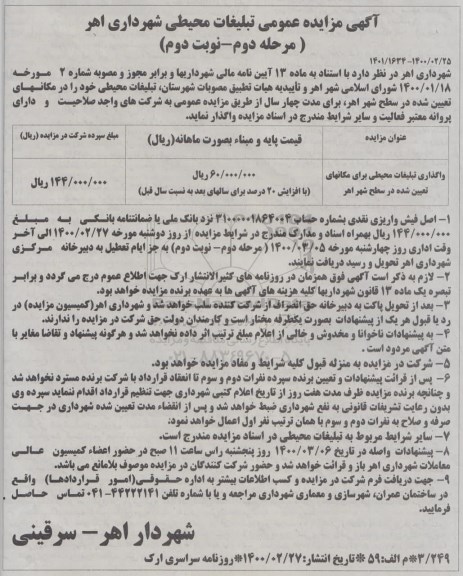 آگهی مزایده عمومی تبلیغات محیطی شهرداری اهر
( مرحله دوم-نوبت دوم)
۱۴۰۱/۱۶۳۴-۱۴۰۰/۰۲/۲۵
شهرداری اهر در نظر دارد با استناد به ماده ۱۳ آیین نامه مالی شهرداریها و برابر مجوز و مصوبه شماره ۲ مورخه
۱۴۰۰/۰۱/۱۸ شورای اسلامی شهر اهر و تأییدیه هیات تطبیق مصوبات شهرستان، تبلیغات محیطی خود را در مکانهای
تعیین شده در سطح شهر اهر، برای مدت چهار سال از طریق مزایده عمومی به شرکت های واجد صلاحیت و دارای
پروانه معتبر فعالیت و سایر شرایط مندرج در اسناد مزایده واگذار نماید.
عنوان مزایده
قیمت پایه و مبناء بصورت ماهانه(ریال)
مبلغ سپرده شرکت در مزایده (ریال)
واگذاری تبلیغات محیطی برای مکانهای
تعیین شده در سطح شهر اهر
۶۰/۰۰۰/۰۰۰ ریال
(با افزایش ۲۰ درصد برای سالهای بعد به نسبت سال قبل)
۱۴۴/۰۰۰/۰۰۰ ریال
۱- اصل فیش واریزی نقدی بشماره حساب ۳۱۰۰۰۰۱۸۶۴۰۰۴ نزد بانک ملی یا ضمانتنامه بانکی به مبلغ
۱۴۴/۰۰۰/۰۰۰ ریال بهمراه اسناد و مدارک مندرج در شرایط مزایده از روز دوشنبه مورخه ۱۴۰۰/۰۲/۲۷ الی آخر
وقت اداری روز چهارشنبه مورخه ۱۴۰۰/۰۳/۰۵ ( مرحله دوم- نوبت دوم) به جز ایام تعطیل به دبیرخانه مرکزی
شهرداری اهر تحویل و رسید دریافت نمایند.
۲- لازم به ذکر است آگهی فوق همزمان در روزنامه های کثیرالانتشار ارک جهت اطلاع عموم درج می گردد و برابر
تبصره یک ماده ۱۳ قانون شهرداریها کلیه هزینه های آگهی ها به عهده برنده مزایده خواهد بود.
۳- بعد از تحویل پاکت به دبیرخانه حق انصراف از شرکت کننده سلب خواهد شد و شهرداری اهر(کمیسیون مزایده) در
رد یا قبول هر یک از پیشنهادات بصورت یکطرفه مختار است و کارمندان دولت حق شرکت در مزایده را ندارند.
۴- به پیشنهادات ناخوانا و مخدوش و خالی از اعلام مبلغ ترتیب اثر داده نخواهد شد و هرگونه پیشنهاد و تقاضا مغایر با
متن آگهی مردود است .
۵- شرکت در مزایده به منزله قبول کلیه شرایط و مفاد مزایده خواهد بود.
۶- پس از قرائت پیشنهادات و تعیین برنده سپرده نفرات دوم و سوم تا انعقاد قرارداد با شرکت برنده مسترد نخواهد شد
و چنانچه برنده مزایده ظرف مدت هفت روز از تاریخ اعلام کتبی شهرداری جهت تنظیم قرارداد اقدام ننماید سپرده وی
بدون رعایت تشریفات قانونی به نفع شهرداری ضبط خواهد شد و پس از انقضاء مدت تعیین شده شهرداری در جهت
صرفه و صلاح به نفرات دوم و سوم با همان ترتیب نفر اول اعمال خواهد نمود:
۷- سایر شرایط مربوط به تبلیغات محیطی در اسناد مزایده مندرج است.
۸- پیشنهادات واصله در تاریخ ۱۴۰۰/۰۳/۰۶ روز پنجشنبه راس ساعت ۱۱ صبح در حضور اعضاء کمیسیون عالی
معاملات شهرداری اهر باز و قرائت خواهد شد و حضور شرکت کنندگان در مزایده موصوف بلامانع می باشد.
۹- جهت دریافت فرم شرکت در مزایده و کسب اطلاعات بیشتر به اداره حقوقی(امور قراردادها) واقع
در ساختمان عمران، شهرسازی و معماری شهرداری مراجعه و یا با شماره تلفن ۴۴۲۲۲۱۴۱-۰۴۱ تماس حاصل
فرمایید.
شهردار اهر- سرقینی
۳/۲۴۹*م الف:۵۹ *تاریخ انتشار:۱۴۰۰/۰۲/۲۷*روزنامه سراسری ارک